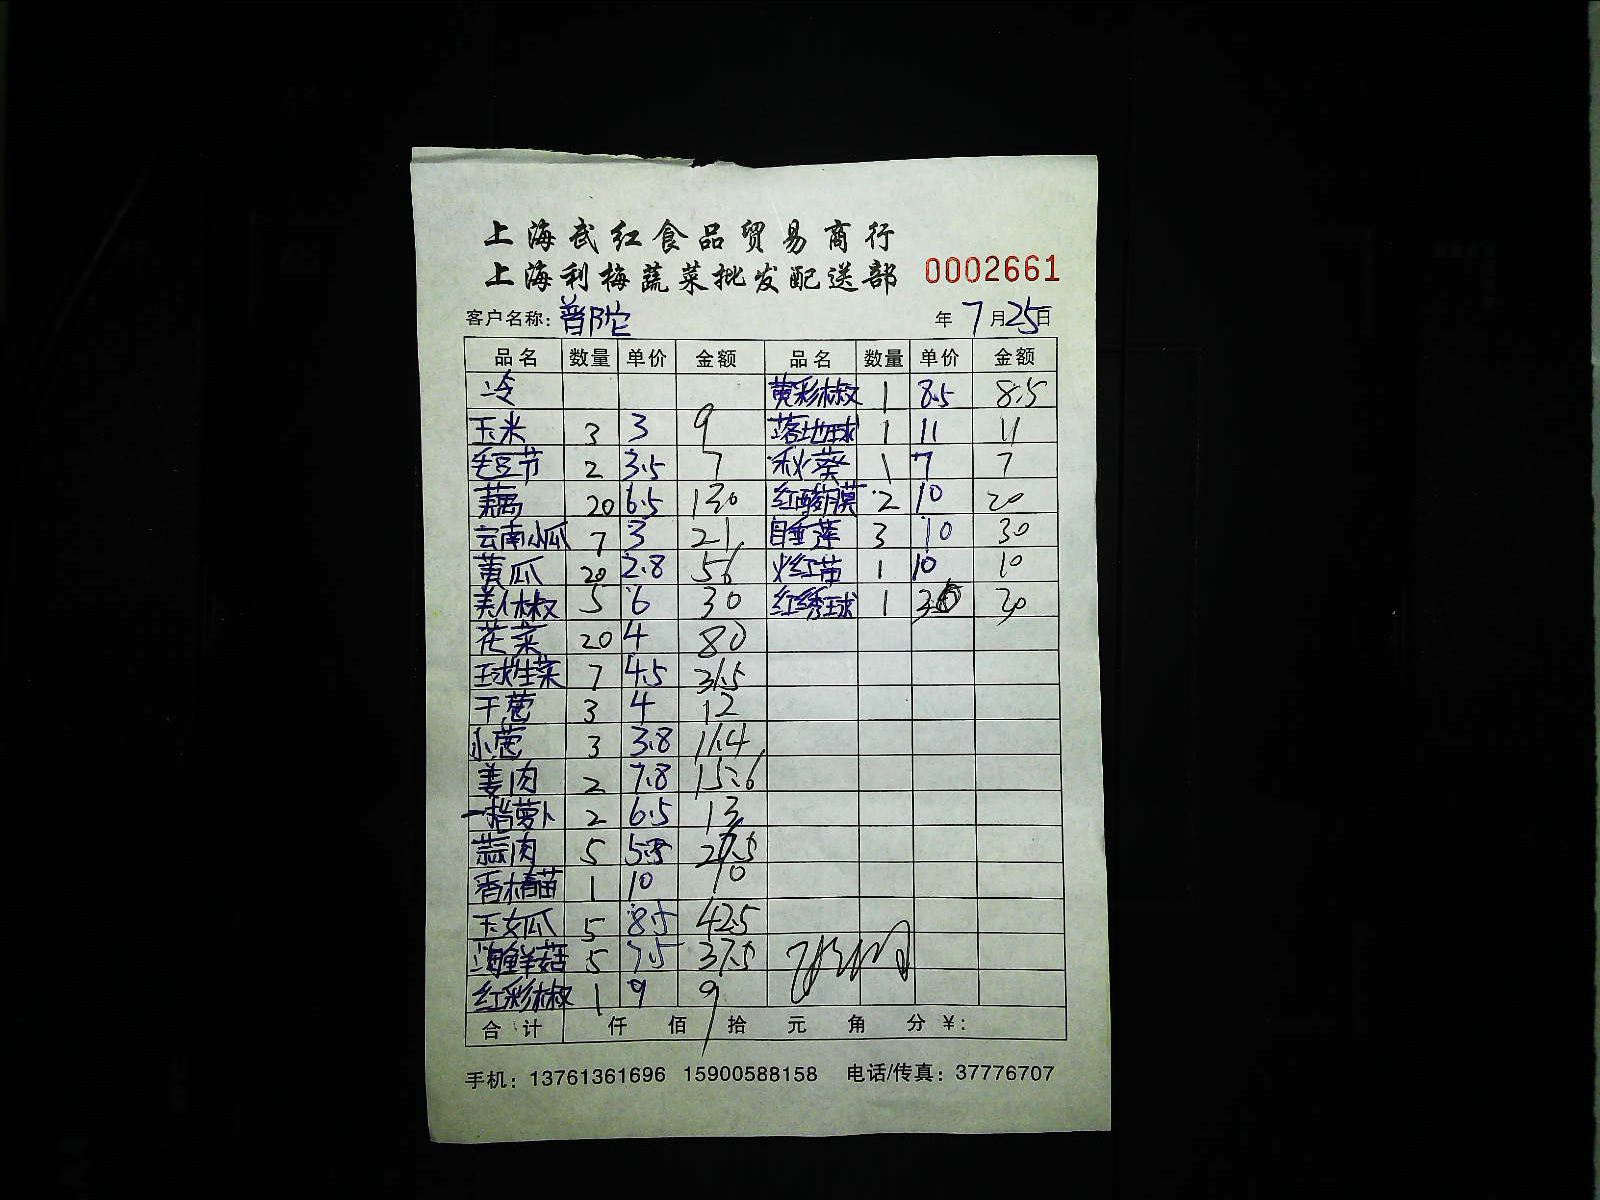 上海武红食品贸易商行
上海利梅蔬菜批发配送部 0002661
客户名称：普陀 年 7 月 25 日
品名 数量 单价 金额 品名 数量 单价 金额
冷 黄彩椒 1 8.5 8.5
玉米 3 3 9 落地球 1 11 11
毛豆节 2 3.5 7 秋葵 1 7 7
藕 20 6.5 130 红酸膜 2 10 20
云南小瓜 7 3 21 睡莲 3 10 30
黄瓜 20 2.8 56 火红苗 1 10 10
美人椒 5 6 30 红绣球 1 30 30
芒菜 20 4 80
球生菜 7 4.5 31.5
干葱 3 4 12
小葱 3 3.8 11.4
姜肉 2 7.8 15.6
一指萝卜 2 6.5 13
蒜肉 5 5.5 27.5
香椿苗 1 10 10
玉女瓜 5 8.5 42.5
海鲜菇 5 7.5 37.5
红彩椒 1 9 9
合计 仟 佰 拾 元 角 分 ¥：
手机：13761361696 15900588158 电话/传真：37776707